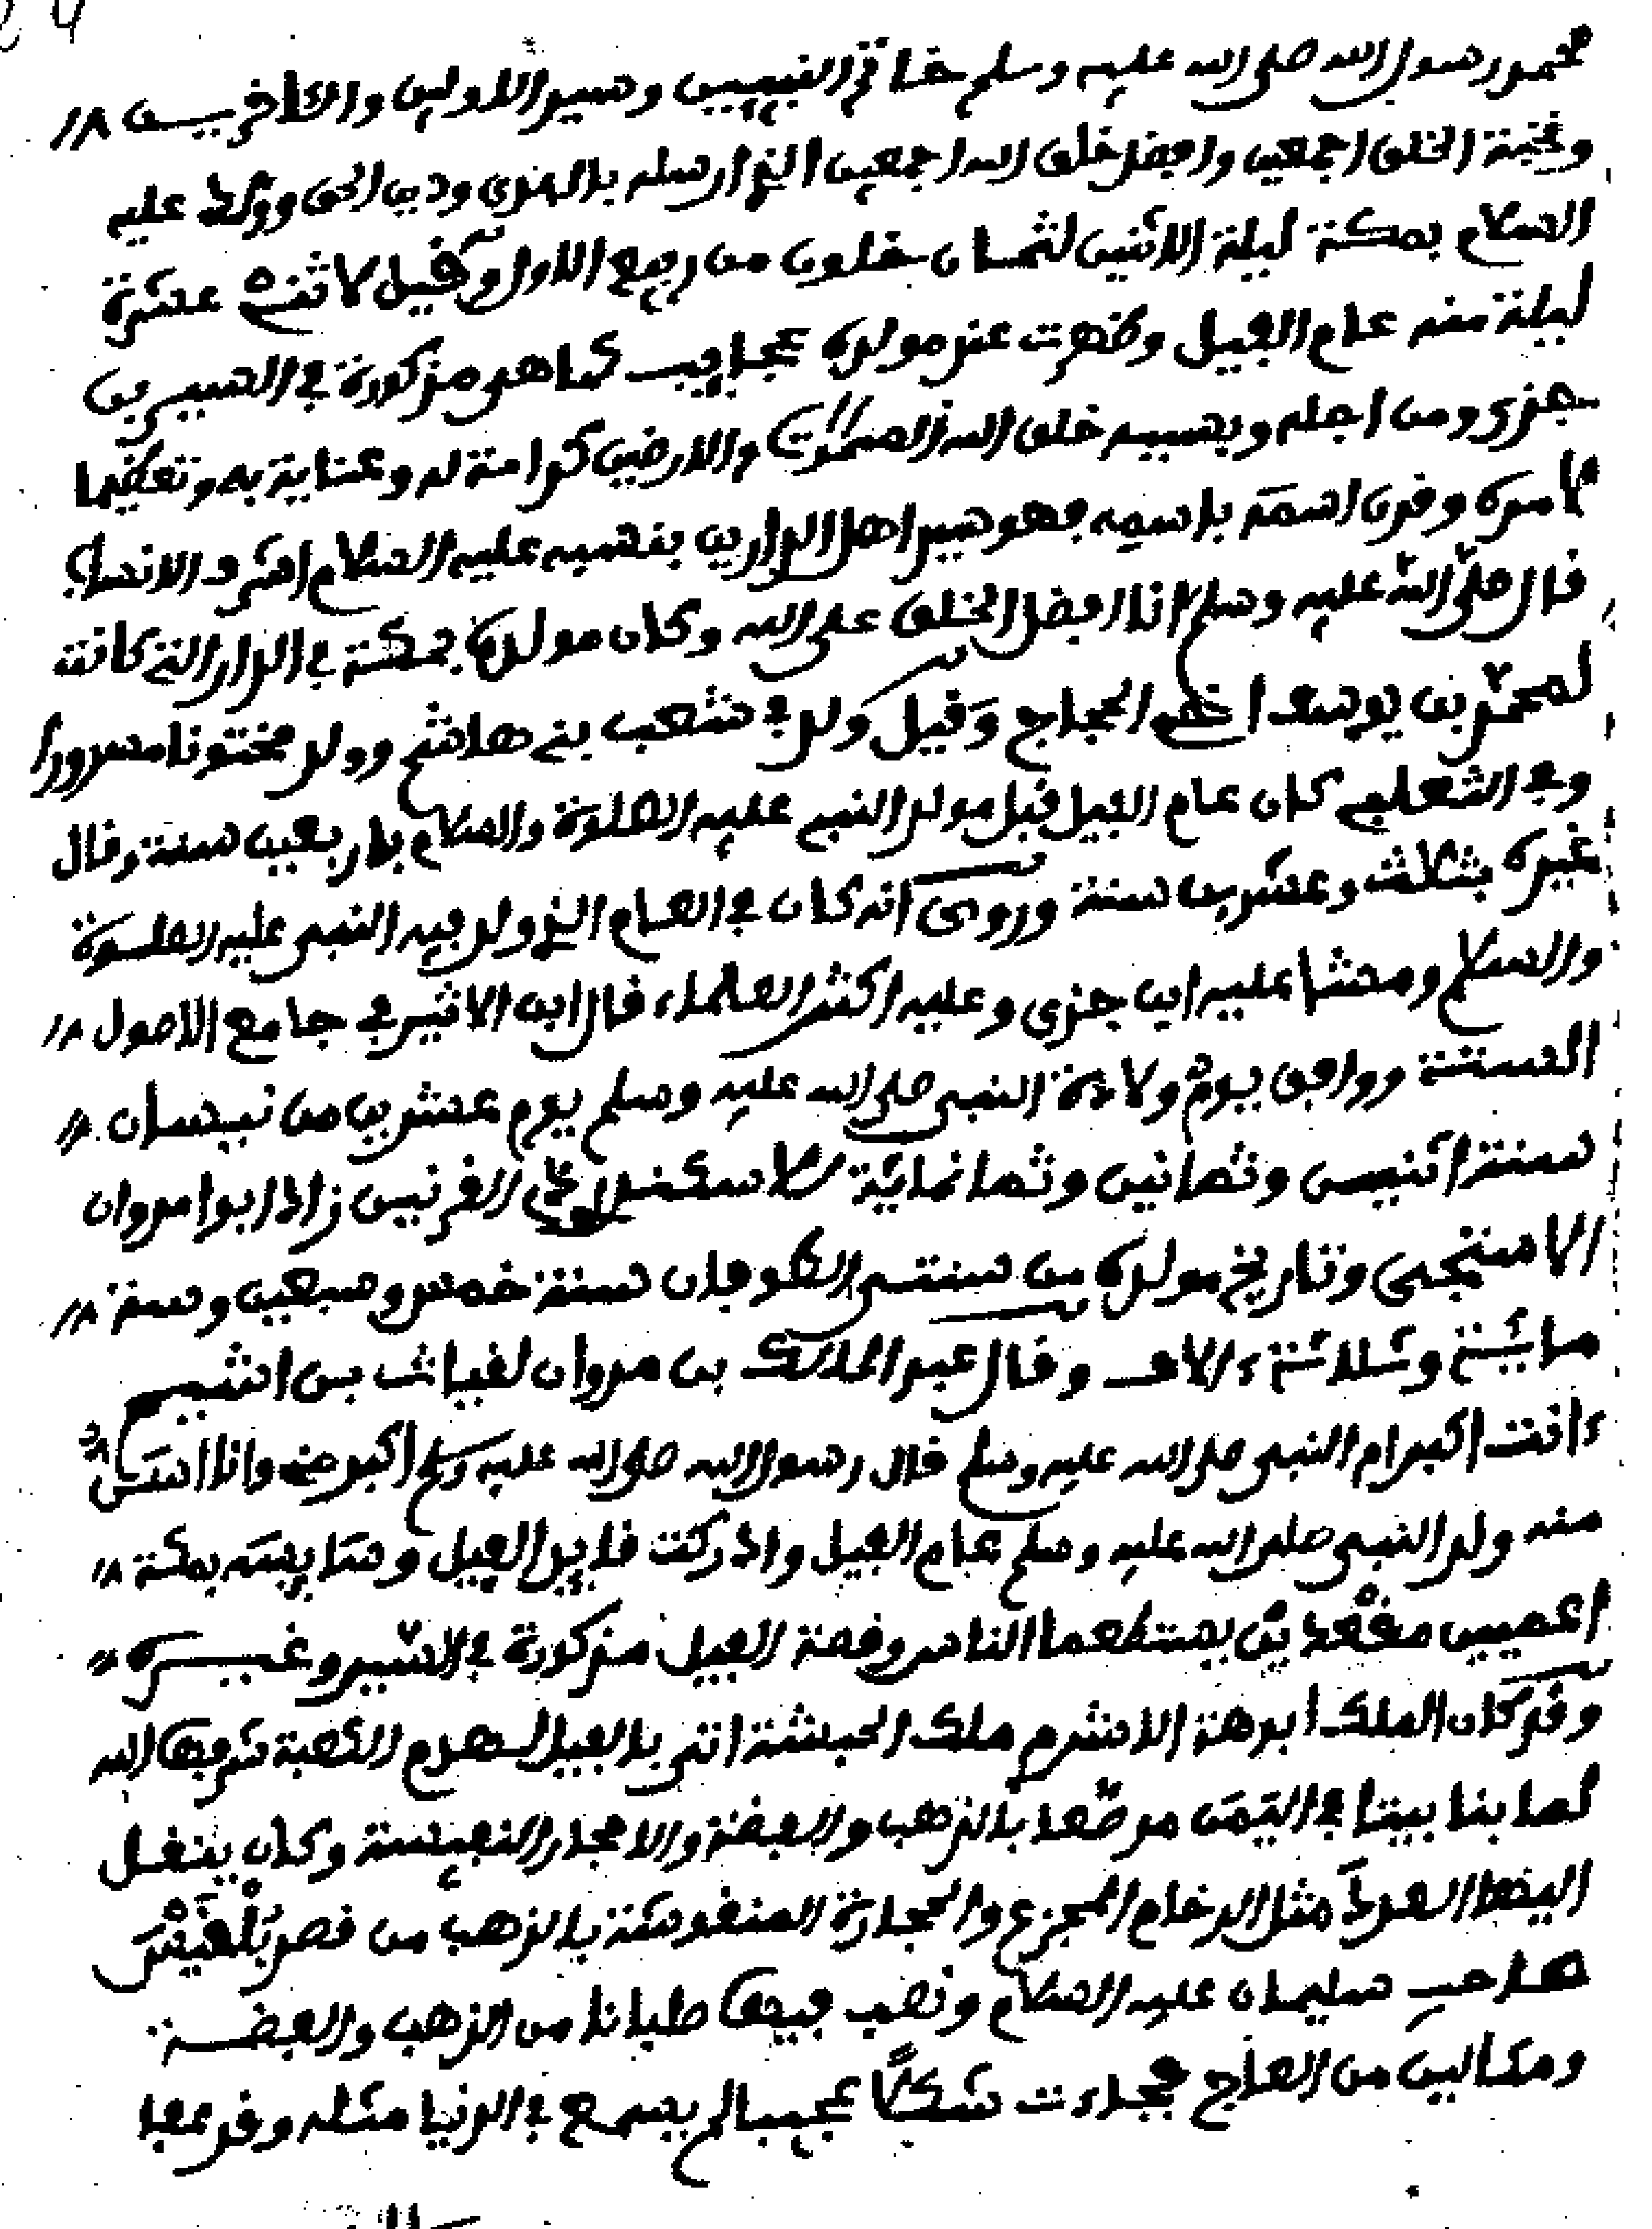 محمد رسول الله صلى الله عليه وسلم خاتم النبيين وسيد الاولين والاخرين
ونخبة الخلق اجمعين وافضل خلق الله اجمعين الذي ارسله بالهدى ودين الحق وولد عليه
السلام بمكة ليلة الاثنين لثمان خلون من ربيع الاول وقيل لاثنى عشرة
ليلة منه عام الفيل وظهرت عند مولده عجايب كما هو مذكورة في السير بن
جزي ومن اجله وبسببه خلق الله السموت والارضين كرامة له وعناية به وتعظيما
لامره وقرن اسمه باسمه فهو سيد اهل الدارين بنسبه عليه السلام اشرف الانساب
قال صلى الله عليه وسلم انا افضل الخلق على الله وكان مولده بمكة في الدار التي كانت
لمحمد بن يوسف اخي الحجاج وقيل ولد في شعب بني هاشم وولد مختونا مسرورا
وفي الثعلبي كان عام الفيل قبل مولد النبي عليه الصلوة والسلام باربعين سنة وقال
غيره بثلث وعشرين سنة وروى انه كان في العام الذي ولد فيه النبي عليه الصلوة
والسلام ومشا عليه ابن جزي وعليه اكثر العلماء قال ابن الاثير في جامع الاصول
الستة ووافق يوم ولادة النبي صلى الله عليه وسلم يوم عشرين من نيسان
سنة اثنين وثمانين وثمانماية للاسكندر ذي القرنين زاد ابوا مروان
الاستجى وتاريخ مولده من سنتى الطوفان سنة خمس وسبعين وستة
مائة وثلاثة ءالاف وقال عبد الملك بن مروان لغياث بن اشيم
ءانت اكبر ام النبي صلى الله عليه وسلم قال رسول الله صلى الله عليه وسلم اكبر منى وانا اسن
منه ولد النبي صلى الله عليه وسلم عام الفيل وادركت قايد الفيل وسايسه بمكة
اعميين مقعدين يستطعما الناس وقصة الفيل مذكورة في السير وغيره
وقد كان الملك ابرهة الاشرم ملك الحبشة اتى بالفيل لهدم الكعبة شرفها الله
لما بنا بيتا في اليمن مرصعا بالذهب والفضة والاحجار النفيسة وكان ينقل
اليها مثل الرخام المجزع والحجارة المنقوشة بالذهب من قصر بلقيس
صاحب سليمان عليه السلام ونصب فيها صلبانا من الذهب والفضة
ومن العاج فجاءت شكلا عجيبا لم يسمع في الدنيا مثله وقد عفا